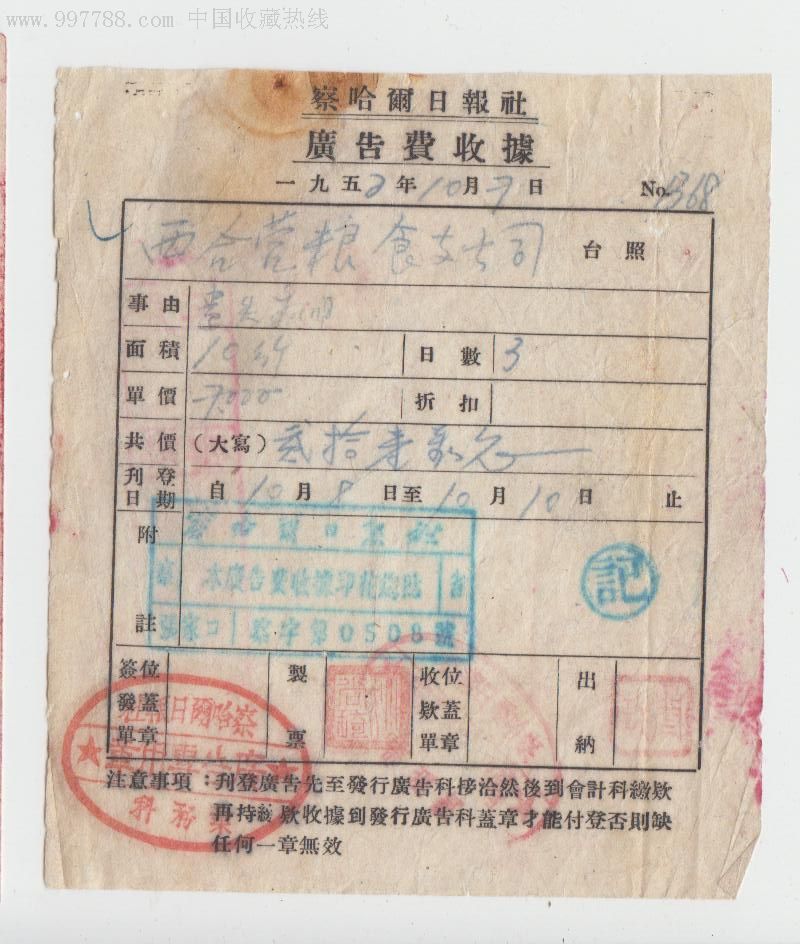 www.997788.com 中国收藏热线
察哈爾日報社
廣告費收據
一九五2年10月7日 No. 1368
西合营粮食支公司 台照
事由
面積 10行 日數 3
單價 7000 折扣
共價 (大寫) 貳拾壹萬元
刊登日期 自10月8日至10月10日止
附註
察哈爾日報社
本廣告費收據印花總貼
張家口 察字第0508號
記
簽發單位蓋章 製票 收款單位蓋章 出納
察哈爾日報社
業務科
注意事項：刊登廣告先至發行廣告科接洽然後到會計科繳欵
再持繳欵收據到發行廣告科蓋章才能付登否則缺
任何一章無效